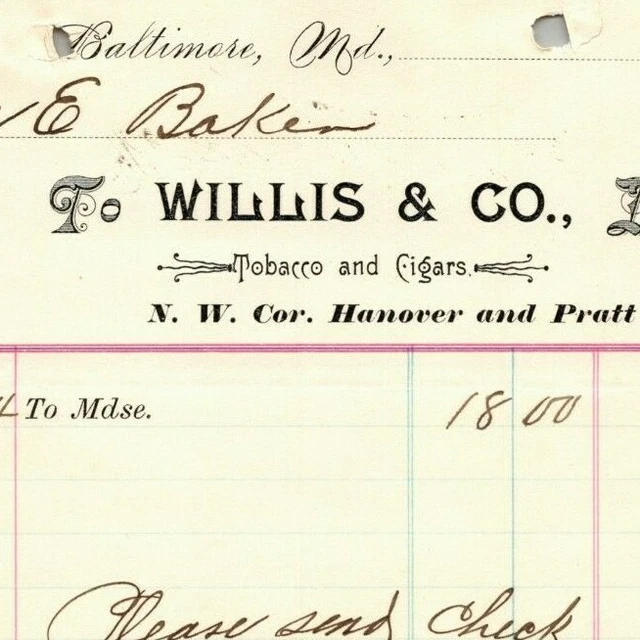 Baltimore, Md.,
E Baker
To WILLIS & CO.,
Tobacco and Cigars.
N. W. Cor. Hanover and Pratt
To Mdse. 18 00
Please send check